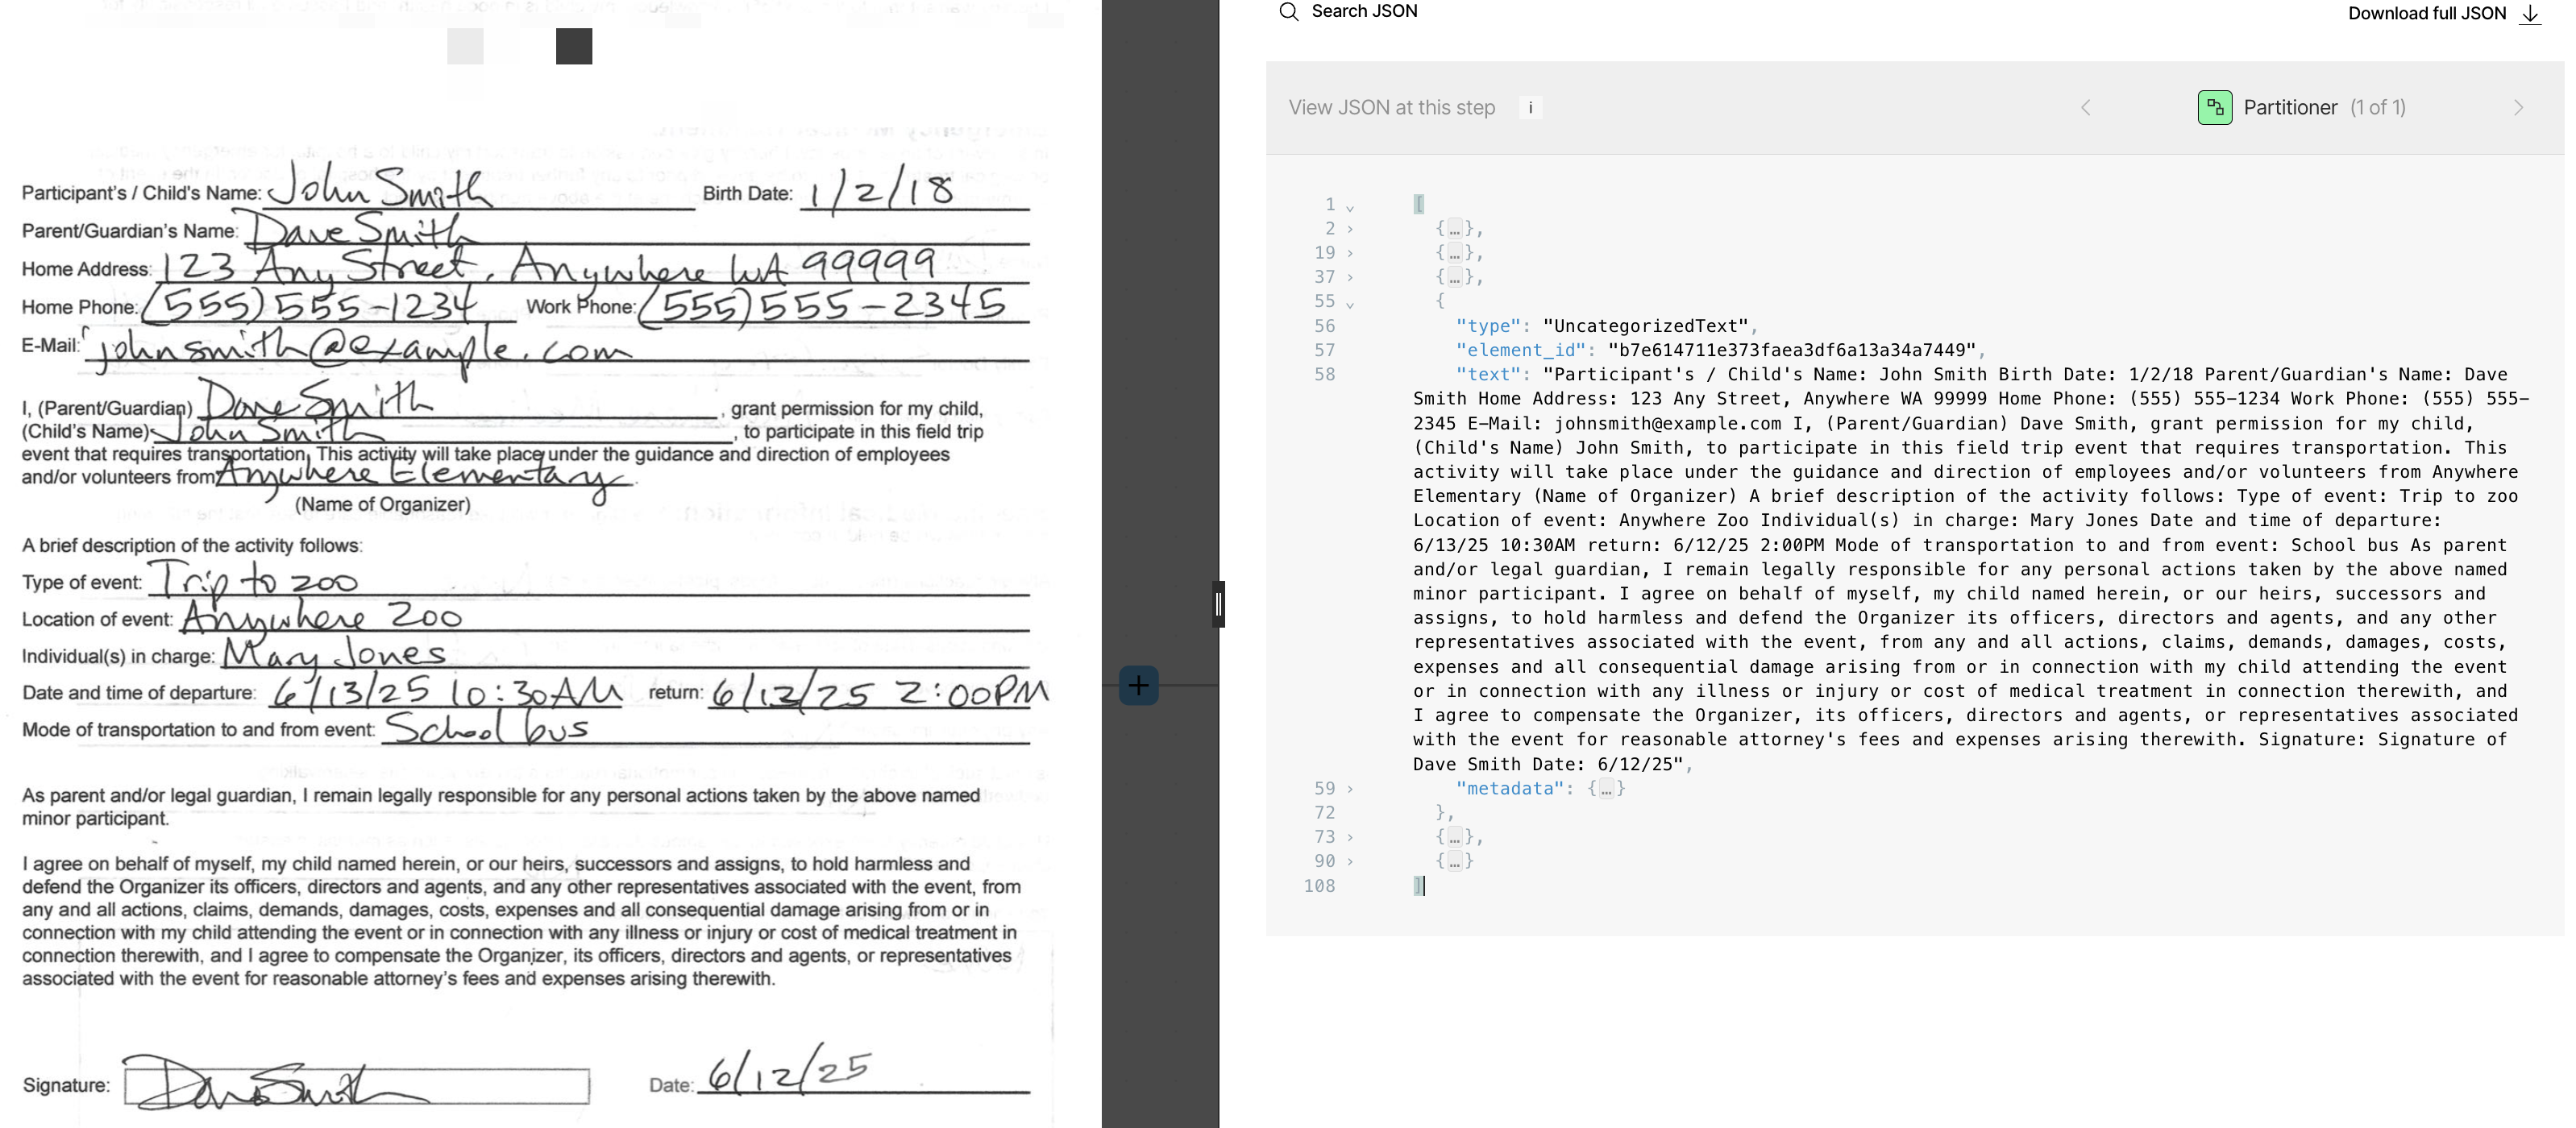 Participant's / Child's Name: John Smith Birth Date: 1/2/18
Parent/Guardian's Name: Dave Smith
Home Address: 123 Any Street, Anywhere WA 99999
Home Phone: (555) 555-1234 Work Phone: (555) 555-2345
E-Mail: johnsmith@example.com
I, (Parent/Guardian) Dave Smith, grant permission for my child,
(Child's Name) John Smith, to participate in this field trip
event that requires transportation. This activity will take place under the guidance and direction of employees
and/or volunteers from Anywhere Elementary.
(Name of Organizer)
A brief description of the activity follows:
Type of event: Trip to zoo
Location of event: Anywhere Zoo
Individual(s) in charge: Mary Jones
Date and time of departure: 6/13/25 10:30AM return: 6/13/25 2:00PM
Mode of transportation to and from event: School bus
As parent and/or legal guardian, I remain legally responsible for any personal actions taken by the above named
minor participant.
I agree on behalf of myself, my child named herein, or our heirs, successors and assigns, to hold harmless and
defend the Organizer its officers, directors and agents, and any other representatives associated with the event, from
any and all actions, claims, demands, damages, costs, expenses and all consequential damage arising from or in
connection with my child attending the event or in connection with any illness or injury or cost of medical treatment in
connection therewith, and I agree to compensate the Organizer, its officers, directors and agents, or representatives
associated with the event for reasonable attorney's fees and expenses arising therewith.
Signature: Dave Smith Date: 6/12/25
Search JSON
Download full JSON
View JSON at this step i
Partitioner (1 of 1)
1 [
2 {…},
19 {…},
37 {…},
55 {
56 "type": "UncategorizedText",
57 "element_id": "b7e614711e373faea3df6a13a34a7449",
58 "text": "Participant's / Child's Name: John Smith Birth Date: 1/2/18 Parent/Guardian's Name: Dave
Smith Home Address: 123 Any Street, Anywhere WA 99999 Home Phone: (555) 555-1234 Work Phone: (555) 555-
2345 E-Mail: johnsmith@example.com I, (Parent/Guardian) Dave Smith, grant permission for my child,
(Child's Name) John Smith, to participate in this field trip event that requires transportation. This
activity will take place under the guidance and direction of employees and/or volunteers from Anywhere
Elementary (Name of Organizer) A brief description of the activity follows: Type of event: Trip to zoo
Location of event: Anywhere Zoo Individual(s) in charge: Mary Jones Date and time of departure:
6/13/25 10:30AM return: 6/12/25 2:00PM Mode of transportation to and from event: School bus As parent
and/or legal guardian, I remain legally responsible for any personal actions taken by the above named
minor participant. I agree on behalf of myself, my child named herein, or our heirs, successors and
assigns, to hold harmless and defend the Organizer its officers, directors and agents, and any other
representatives associated with the event, from any and all actions, claims, demands, damages, costs,
expenses and all consequential damage arising from or in connection with my child attending the event
or in connection with any illness or injury or cost of medical treatment in connection therewith, and
I agree to compensate the Organizer, its officers, directors and agents, or representatives associated
with the event for reasonable attorney's fees and expenses arising therewith. Signature: Signature of
Dave Smith Date: 6/12/25",
59 "metadata": {…}
72 },
73 {…},
90 {…}
108 ]